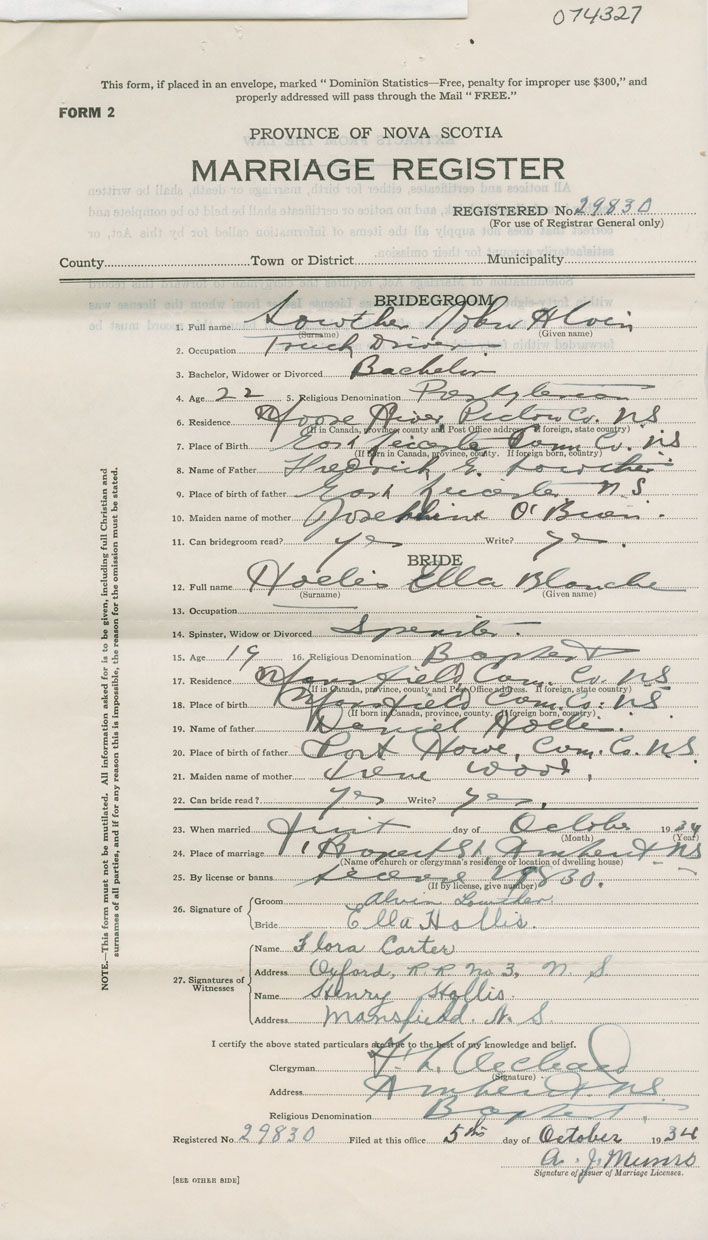 074327
This form, if placed in an envelope, marked "Dominion Statistics—Free, penalty for improper use $300," and
properly addressed will pass through the Mail "FREE."
FORM 2
PROVINCE OF NOVA SCOTIA
MARRIAGE REGISTER
REGISTERED No 29830
(For use of Registrar General only)
County Town or District Municipality
BRIDEGROOM
1. Full name Lowther John Alvin
(Surname) (Given name)
2. Occupation Truck Driver
3. Bachelor, Widower or Divorced Bachelor
4. Age 22 5. Religious Denomination Presbyterian
6. Residence Moose River, Pictou Co. N S
(If in Canada, province, county and Post Office address. If foreign, state country)
7. Place of Birth East Leicester Cum. Co. N S
(If born in Canada, province, county. If foreign born, country)
8. Name of Father Fredrick E. Lowther
9. Place of birth of father East Leicester N. S.
10. Maiden name of mother Josephine O'Brien.
11. Can bridegroom read? Yes Write? Yes.
BRIDE
12. Full name Ella Blanche
(Surname) (Given name)
13. Occupation
14. Spinster, Widow or Divorced Spinster.
15. Age 19 16. Religious Denomination Baptist
17. Residence Mansfield Cum. Co. N S
(If in Canada, province, county and Post Office address. If foreign, state country)
18. Place of Birth Mansfield Cum. Co. N S
(If born in Canada, province, county. If foreign born, country)
19. Name of father Daniel
20. Place of birth of father Port Howe, Cum. Co. N.S.
21. Maiden name of mother Irene Wood,
22. Can bride read? Yes Write? Yes.
23. When married First day of October 1934
(Month) (Year)
24. Place of marriage Rupert St. Amherst N S
(Name of church or clergyman's residence or location of dwelling house)
25. By license or banns License 29830.
(If by license, give number)
26. Signature of
Groom Alvin Lowther
Bride Ella Hollis.
27. Signatures of
Witnesses
Name Flora Carter
Address Oxford, R R No 3, N. S.
Name Henry Hollis.
Address Mansfield. N. S.
I certify the above stated particulars are true to the best of my knowledge and belief.
Clergyman
(Signature)
Address Amherst. N.S.
Religious Denomination Baptist.
Registered No. 29830 Filed at this office 5th day of October 1934
A. J. Munro
Signature of Issuer of Marriage Licenses.
[SEE OTHER SIDE]
NOTE.—This form must not be mutilated. All information asked for is to be given, including full Christian and
surnames of all parties, and if for any reason this is impossible, the reason for the omission must be stated.